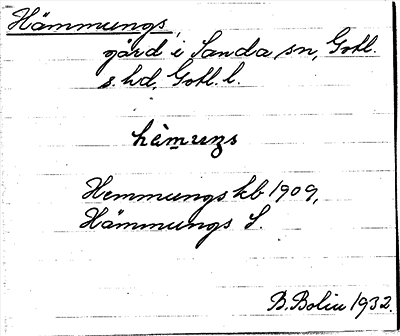 Hämmungs,
gård i Sanda sn, Gotl.
s. hd, Gotl. l.
Hemmungs kb 1909,
Hämmungs S.
B. Bolin 1932.